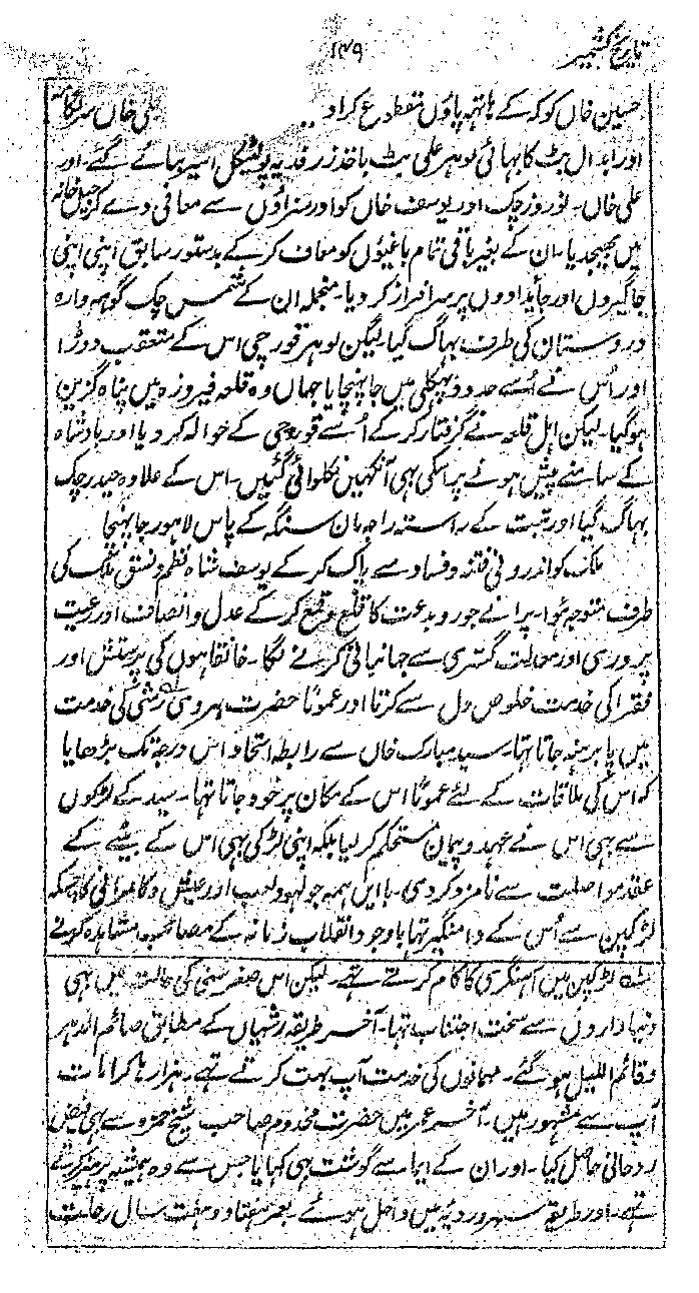 تاریخ کشمیر
۱۴۹
حسین خاں کو کرکے ہاتھ پاؤں منقطع کرا دے علی خاں
اور ابدال بٹ کا بہائی لوہر علی بٹ باخذ زر فدیہ پولیٹیکل اسیر بنائے گئے۔ اور
علی خاں۔ نوروز چک اور یوسف خاں کو اور سزاؤں سے معافی دے کر جیل خانہ
میں بھیجدیا۔ ان کے بغیر باقی تمام باغیوں کو معاف کرکے بدستور سابق اپنی اپنی
جاگیروں اور جایدادوں پر سرافراز کر دیا۔ منجملہ ان کے شمس چک گوہہ وارہ
دروستان کی طرف بہاگ گیا۔ لیکن لوہر قورچی اس کے متعقوب دوڑا
اور اس نے اُسے حدود پہکلی میں جا پہنچایا جہاں وہ قلعہ فیروزہ میں پناہ گزین
ہوگیا۔ لیکن اہل قلعہ نے گرفتار کرکے اُسے قورچی کے حوالہ کر دیا اور بادشاہ
کے سامنے پیش ہونے پر اسکی بہی آنکہیں نکلوائی گئیں۔ اس کے علاوہ حیدر چک
بہاگ گیا اور تبت کے راستہ راجہ مان سنگہ کے پاس لاہور جا پہنچا
ملک کو اندرونی فتنہ و فساد سے پاک کرکے یوسف شاہ نظم و نسق ملک کی
طرف متوجہ ہوا۔ پرانے جور و بدعت کا قلع و قمع کرکے عدل و انصاف اور رعیت
پروری اور معدلت گستری سے جہانبانی کرنے لگا۔ خانقاہوں کی پرستش اور
فقرا کی خدمت خلوص دل سے کرتا اور عموماً حضرت ہروی ریشی کی خدمت
میں پا برہنہ جاتا تہا۔ سید مبارک خاں سے رابطہ اتحاد اس درجہ تک بڑھایا
کہ اس کی ملاقات کے لئے عموماً اس کے مکان پر خود جاتا تہا۔ سید کے لڑکوں
سے بہی اس نے عہد و پیمان مستحکم کر لیا بلکہ اپنی لڑکی بہی اس کے بیٹے کے
عقد مواصلت سے نامزد کر دی۔ با ایں ہمہ جو لہو و لعب اور عیش و کامرانی کا چسکہ
لڑکپن سے اُس کے دامنگیر تہا باوجود انقلاب زمانہ کے مصائب مشاہدہ کرنے
لڑکپن میں آہنگری کا کام کرتے تہے۔ لیکن اس صغر سنی کی حالت میں بہی
دنیا داروں سے سخت اجتناب تہا۔ آخر طریقہ رشیاں کے مطابق صائم الدہر
و قائم اللیل ہو گئے۔ مہمانوں کی خدمت آپ بہت کرتے تہے۔ ہزارہا کرامات
آپ سے مشہور ہیں۔ آخر عمر میں حضرت مخدوم صاحب شیخ حمزہ سے بہی فیض
روحانی حاصل کیا۔ اور ان کے ایما سے گوشت بہی کہایا جس سے وہ ہمیشہ پرہیز کرتے
تہے۔ اور طریقہ سہروردیہ میں داخل ہوئے۔ بعمر ہفتاد و ہفت سال رحلت